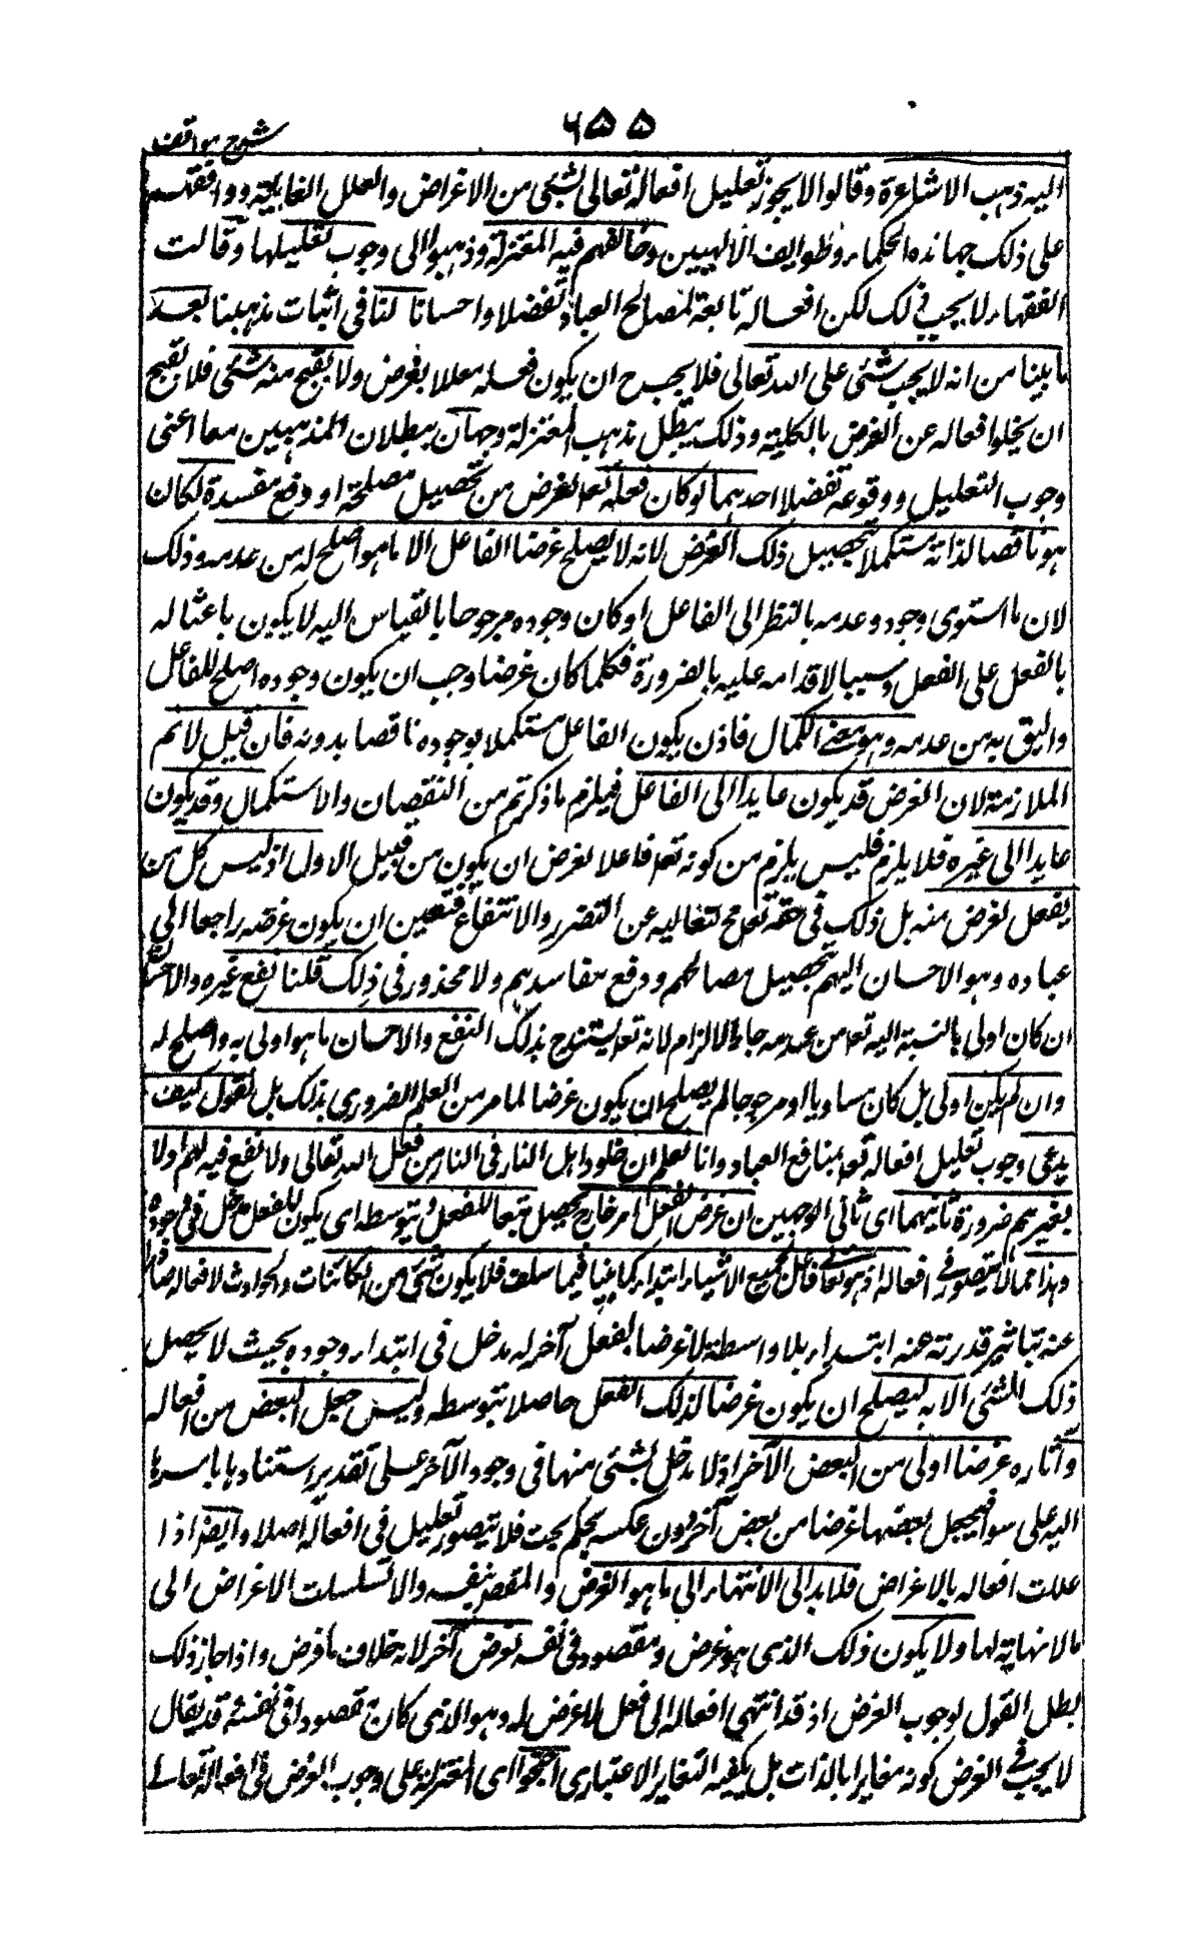 ۶۵۵
شرح مواقف
اليه ذهب الاشاعرة وقالوا لا يجوز تعليل افعاله تعالى بشئ من الاغراض والعلل الغايية ووافقهم
على ذلك جهابذه الحكماء وطوايف الالهيين وخالفهم فيه المعتزلة وذهبوا الى وجوب تعليلها وقالت
الفقهاء لا يجب ذلك لكن افعاله تابعة لمصالح العباد تفضلا واحسانا لنا فى اثبات مذهبنا بعد
ما بينا من انه لا يجب شئ على الله تعالى فلا يجب ح ان يكون فعله معللا بغرض ولا يقبح منه شئ فلا يقبح
ان يخلوا افعاله عن الغرض بالكلية وذلك يبطل مذهب المعتزلة وجهان يبطلان المذهبين معا اعنى
وجوب التعليل ووقوعه تفضلا احدهما لو كان فعله تعا لغرض من تحصيل مصلحة او دفع مفسدة لكان
هو ناقصا لذاته مستكملا بتحصيل ذلك الغرض لانه لا يصلح غرضا الفاعل الا ما هو اصلح له من عدمه وذلك
لان ما استوى وجوده وعدمه بالنظر الى الفاعل او كان وجوده مرجوحا بالقياس اليه لا يكون باعثا له
بالفعل على الفعل وسببا لاقدامه عليه بالضرورة فكلما كان غرضا وجب ان يكون وجوده اصلح للفاعل
واليق به من عدمه وهو معنى الكمال فاذن يكون الفاعل مستكملا بوجوده ناقصا بدونه فان قيل لا نم
الملازمة لان الغرض قد يكون عايدا الى الفاعل فيلزم ما ذكرتم من النقصان والاستكمال وقد يكون
عايدا الى غيره فلا يلزم فليس يلزم من كونه تعا فاعلا لغرض ان يكون من قبيل الاول اذ ليس كل من
يفعل لغرض منه بل ذلك فى حقه تعا مح لتعاليه عن التضرر والانتفاع فتعين ان يكون غرضه راجعا الى
عباده وهو الاحسان اليهم بتحصيل مصالحهم ودفع مفاسدهم ولا محذور فى ذلك قلنا نفع غيره والاحسان
ان كان اولى بالنسبة اليه تعا من عدمه جاء الالزام لانه تعا يستفيد ح بذلك النفع والاحسان ما هو اولى به واصلح له
وان لم يكن اولى بل كان مساويا او مرجوحا لم يصلح ان يكون غرضا لما مر من العلم الضرورى بذلك بل نقول كيف
يدعى وجوب تعليل افعاله تعا بمنافع العباد وانا نعلم ان خلود اهل النار فى النار من فعل الله تعالى ولا نفع فيه لهم ولا
لغيرهم ضرورة ثانيهما اى ثانى الوجهين ان غرض الفعل امر خارج يحصل تبعا للفعل وبتوسطه اى يكون للفعل مدخل فى وجوده
وهذا مما لا يتصور فى افعاله اذ هو تعالى فاعل لجميع الاشياء ابتداء كما بينا فيما سلف فلا يكون شئ من الكائنات والحوادث لافعاله صادرا
عنه بتاثير قدرته عنه ابتداء بلا واسطة لا غرضا لفعل آخر له مدخل فى ابتداء وجوده بحيث لا يحصل
ذلك الشئ الا به ليصلح ان يكون غرضا لذلك الفعل حاصلا بتوسطه وليس جعل البعض من افعاله
وآثاره غرضا اولى من البعض الآخر اذ لا مدخل لشئ منها فى وجود الآخر على تقدير استنادها باسرها
اليه على سواء فجعل بعضها غرضا من بعض آخر دون عكسه تحكم بحت فلا يتصور تعليل فى افعاله اصلا وايضا اذا
عللت افعاله بالاغراض فلا بد الى الانتهاء الى ما هو الغرض والمقصد بنفسه والا تسلسلت الاغراض الى
ما لا نهاية لها ولا يكون ذلك الذى هو غرض ومقصود فى نفسه لغرض آخر لانه خلاف ما فرض واذا جاز ذلك
بطل القول بوجوب الغرض اذ قد انتهى افعاله الى فعل لا غرض له وهو الذى كان مقصودا فى نفسه قد يقال
لا يجب فى الغرض كونه مغايرا بالذات بل يكفيه التغاير الاعتبارى احتجوا اى المعتزلة على وجوب الغرض فى افعاله تعالى